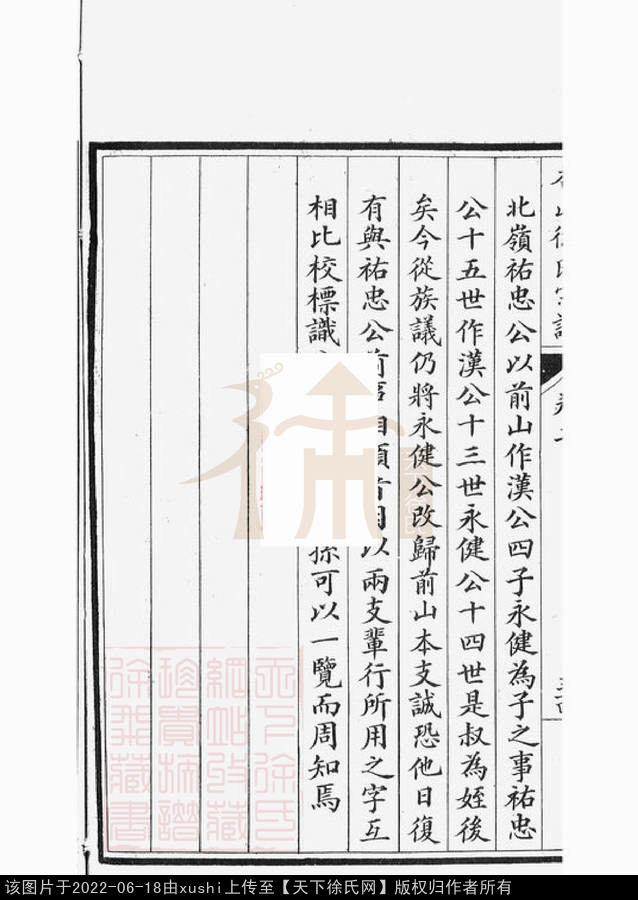 北嶺祐忠公以前山作漢公四子永健為子之事祐忠
公十五世作漢公十三世永健公十四世是叔為姪後
矣今從族議仍將永健公改歸前山本支誠恐他日復
有與祐忠公前事相類者用以兩支輩行所用之字互
相比校標識
孫可以一覽而周知焉
徐
该图片于2022-06-18由xushi上传至【天下徐氏网】版权归作者所有